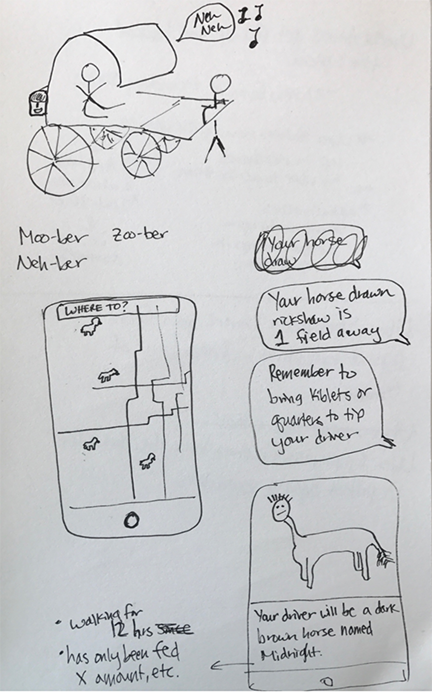 Neh
Neh
Moo-ber Zoo-ber
Neh-ber
Your horse
draw
WHERE TO?
Your horse drawn
rickshaw is
1 field away
Remember to
bring kiblets or
quarters to tip
your driver
Your driver will be a dark
brown horse named
Midnight.
• walking for
12 hrs
• has only been fed
X amount, etc.